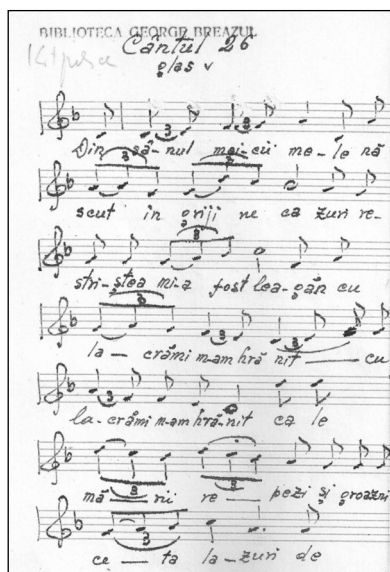 BIBLIOTECA GEORGE BREAZUL
Cântul 26
glas v
Din să-nul mai-cii me-le nă
scut in griji ne ca zuri re-
stri-ștea mi-a fost lea-găn cu
la — crămi m-am hră nit — cu
la-crămi m-am hră-nit ca le
mă — rii re — pezi și groazni
ce — ta la-zuri de